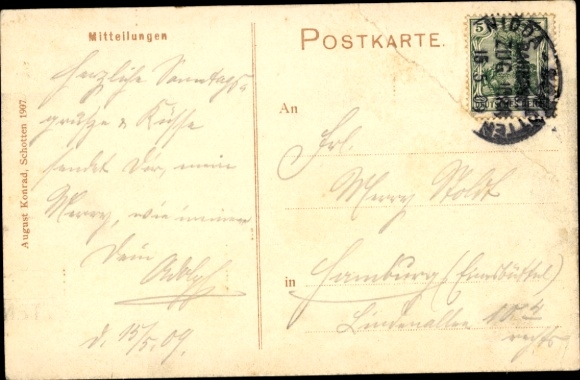 Mitteilungen
Herzliche Sonntags-
grüße & Küsse
sendet Dir, meine
Merry, wie immer
Dein
Adolf
d. 15/5. 09.
August Konrad, Schotten 1907.
POSTKARTE.
An
Frl.
Merry Stoldt
in Hamburg (Eimsbüttel)
Lindenallee 10
rechts
5
NIDDA
BAHNPOST
ZUG
15 5